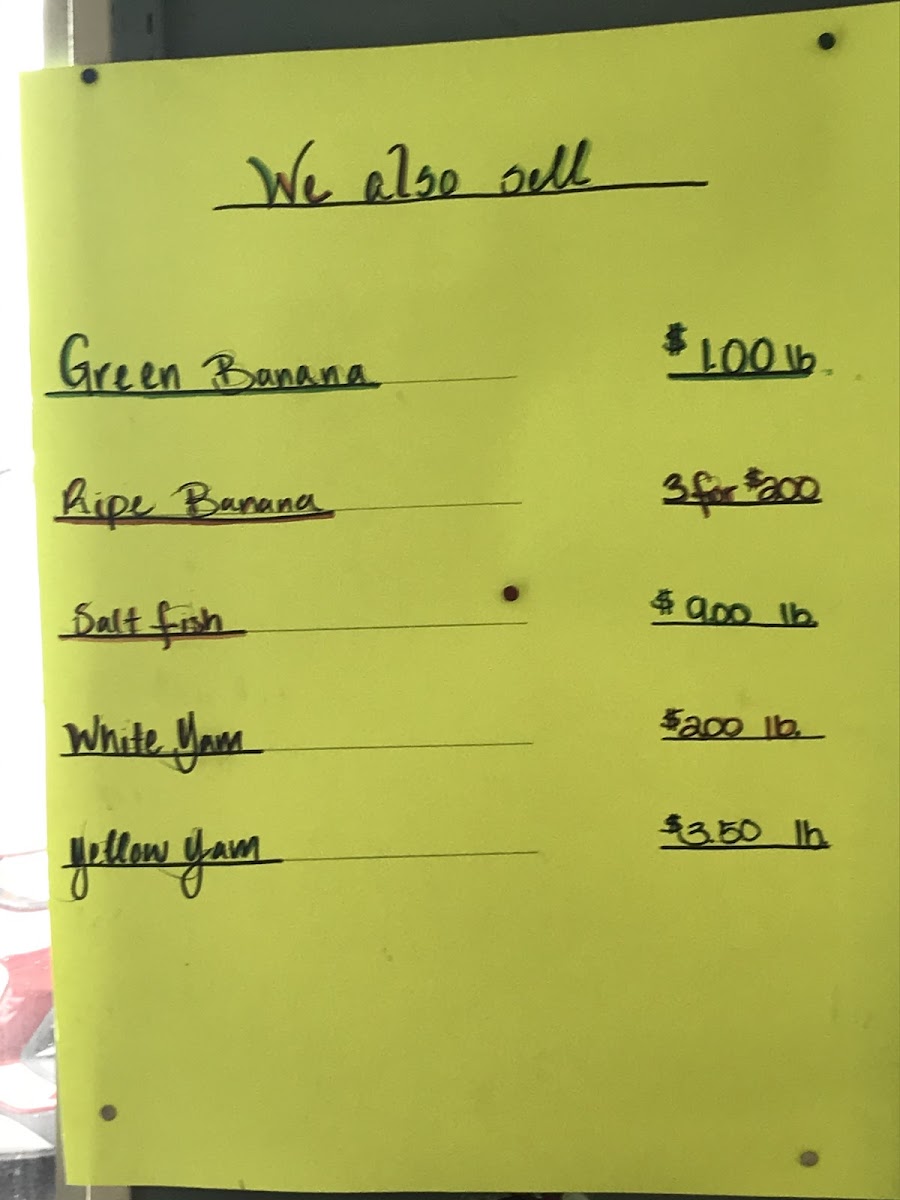 We also sell
Green Banana $1.00 lb.
Ripe Banana 3 for $200
Salt fish $ 9.00 lb
White Yam $200 lb.
yellow yam $3.50 lb